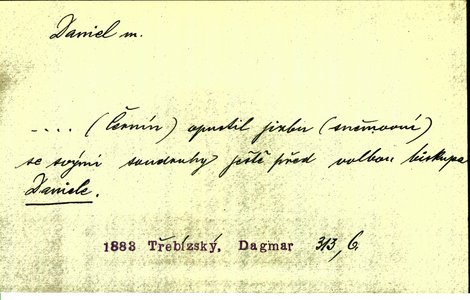 Daniel m.
.... (Černín) opustil jizbu (sněmovní)
se svými soudruhy ještě před volbou biskupa
Daniele.
1883 Třebízský, Dagmar 313, 6.